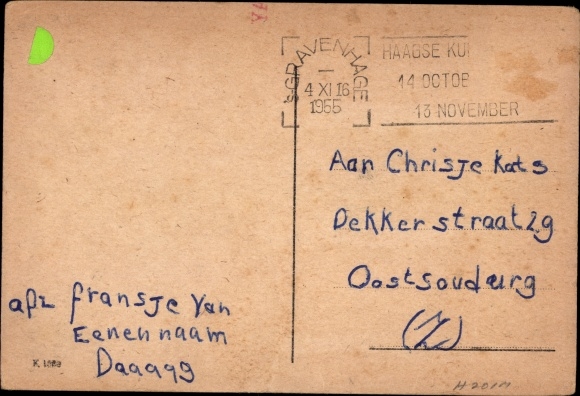 's-GRAVENHAGE
4 XI 16
1955
HAAGSE KU
14 OCTOB
13 NOVEMBER
Aan Chrisje Kats
Dekkerstraat 29
Oostsouburg
(Z)
afz fransje Van
Eenennaam
Daaaag
H 2011